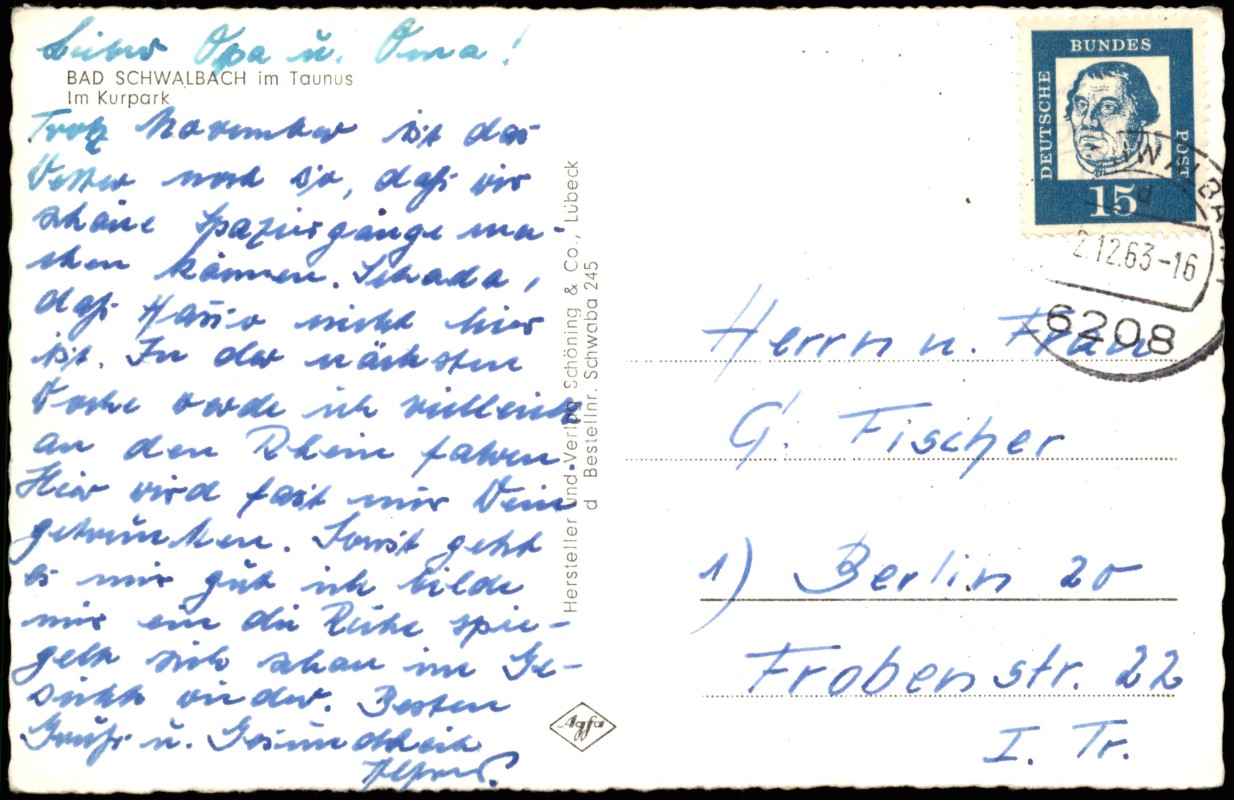 Lieber Opa u. Oma!
BAD SCHWALBACH im Taunus
Im Kurpark
Trotz November ist das
Wetter noch so, daß wir
schöne Spaziergänge ma-
chen können. Schade,
daß nicht hier
ist. In der nächsten
Woche werde ich vielleicht
an den Rhein fahren.
Hier wird fast nur Wein
getrunken. Sonst geht
es mir gut ich bilde
mir ein die Ruhe spie-
gelt sich schon im Ge-
sicht wieder. Besten
Gruß u. Gesundheit
Alfred.
Hersteller und Verlag Schöning & Co., Lübeck
d Bestellnr. Schwaba 245
Agfa
DEUTSCHE BUNDES POST
15
WALBACH
d
2.12.63-16
6208
Herrn u. Frau
G. Fischer
1) Berlin 20
Frobenstr. 22
I. Tr.